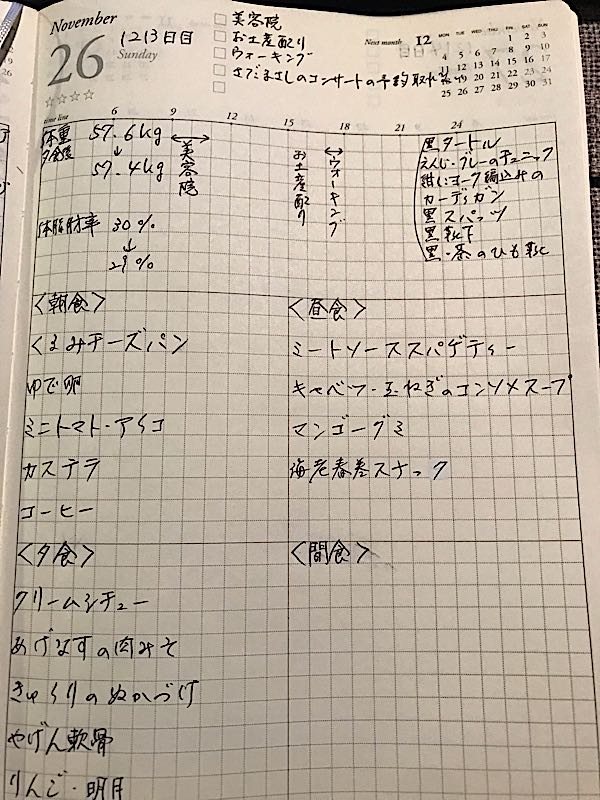 November
26
Sunday
1213日目
美容院
お土産配り
ウォーキング
さだまさしのコンサートの予約取れ
Next month 12
MON TUE WED THU FRI SAT SUN
1 2 3
4 5 6 7 8 9 10
11 12 13 14 15 16 17
18 19 20 21 22 23 24
25 26 27 28 29 30 31
time line 6 9 12 15 18 21 24
体重
夕食後
57.6kg
↓
57.4kg
体脂肪率 30%
↓
29%
美容院
お土産配り
ウォーキング
黒タートル
えんじ・グレーのチュニック
紺にヨーク編込みの
カーディガン
黒スパッツ
黒靴下
黒・茶のひも靴
<朝食>
くるみチーズパン
ゆで卵
ミニトマト・アイコ
カステラ
コーヒー
<昼食>
ミートソーススパゲティー
キャベツ・玉ねぎのコンソメスープ
マンゴーグミ
海老春巻スナック
<夕食>
クリームシチュー
あげなすの肉みそ
きゅうりのぬかづけ
やげん軟骨
りんご・明月
<間食>